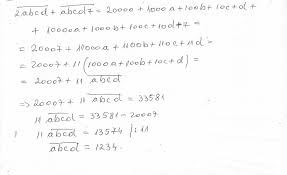 2abcd + abcd7 = 20000 + 1000a + 100b + 10c + d +
+ 10000a + 1000b + 100c + 10d + 7 =
= 20007 + 11000a + 1100b + 110c + 11d =
= 20007 + 11 (1000a + 100b + 10c + d) =
= 20007 + 11 abcd
⇒ 20007 + 11 abcd = 33581
11 abcd = 33581 - 20007
11 abcd = 13574 / : 11
abcd = 1234.